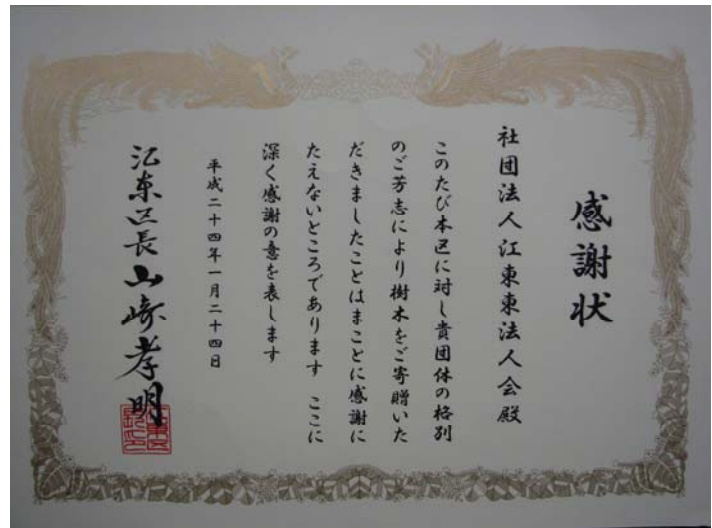 感謝状
社団法人江東東法人会殿
このたび本区に対し貴団体の格別
のご芳志により樹木をご寄贈いた
だきましたことはまことに感謝に
たえないところであります ここに
深く感謝の意を表します
平成二十四年一月二十四日
江東区長山﨑孝明